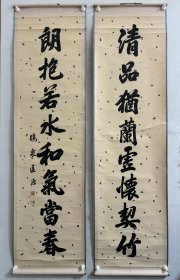 清品猶蘭虛懷契竹
朗抱若水和氣當春